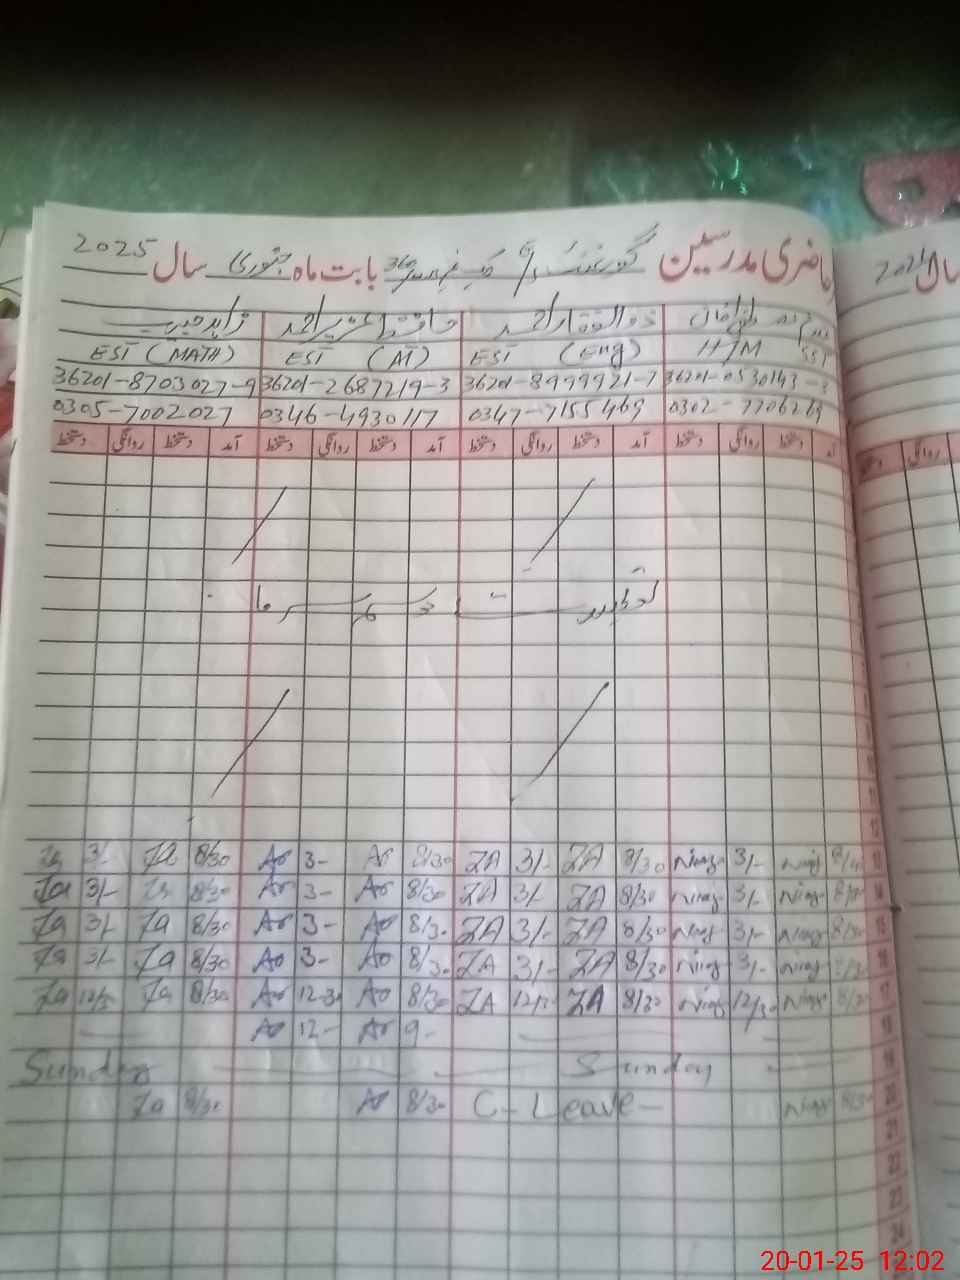 حاضری مدرسین گورنمنٹ بابت ماہ جنوری سال 2025
ذوالفقار احمد حافظ عزیر احمد زاہد حبیب
EST (MATH) EST (AT) EST (Eng) H/M SST
36201-8703027-9 36201-2687219-3 36201-8999921-7 36201-0530143-3
0305-7002027 0346-4930117 0347-7155469 0302-7706269
آمد دستخط روانگی دستخط آمد دستخط روانگی دستخط آمد دستخط روانگی دستخط آمد دستخط روانگی دستخط
12
3/- Za 8/30 Ao 3- Ao 8/30 ZA 3/- ZA 8/30 Niaz 3/- Niaz 13
Za 3/- 8/30 Ao 3- Ao 8/30 ZA 3/- ZA 8/30 Niaz 3/- Niaz 14
Za 3/- Za 8/30 Ao 3- Ao 8/30 ZA 3/- ZA 8/30 Niaz 3/- Niaz 8/30 15
Za 3/- Za 8/30 Ao 3- Ao 8/30 ZA 3/- ZA 8/30 Niaz 3/- Niaz 16
Za Za 8/30 Ao 12-30 Ao 8/30 ZA ZA 8/30 Niaz 12/30 Niaz 8/30 17
Ao 12- Ao 9- 18
Sunday Sunday 19
Za 8/30 Ao 8/30 C-Leave- Niaz 8/30 20
21
22
23
24
سال
روانگی دستخط
20-01-25 12:02